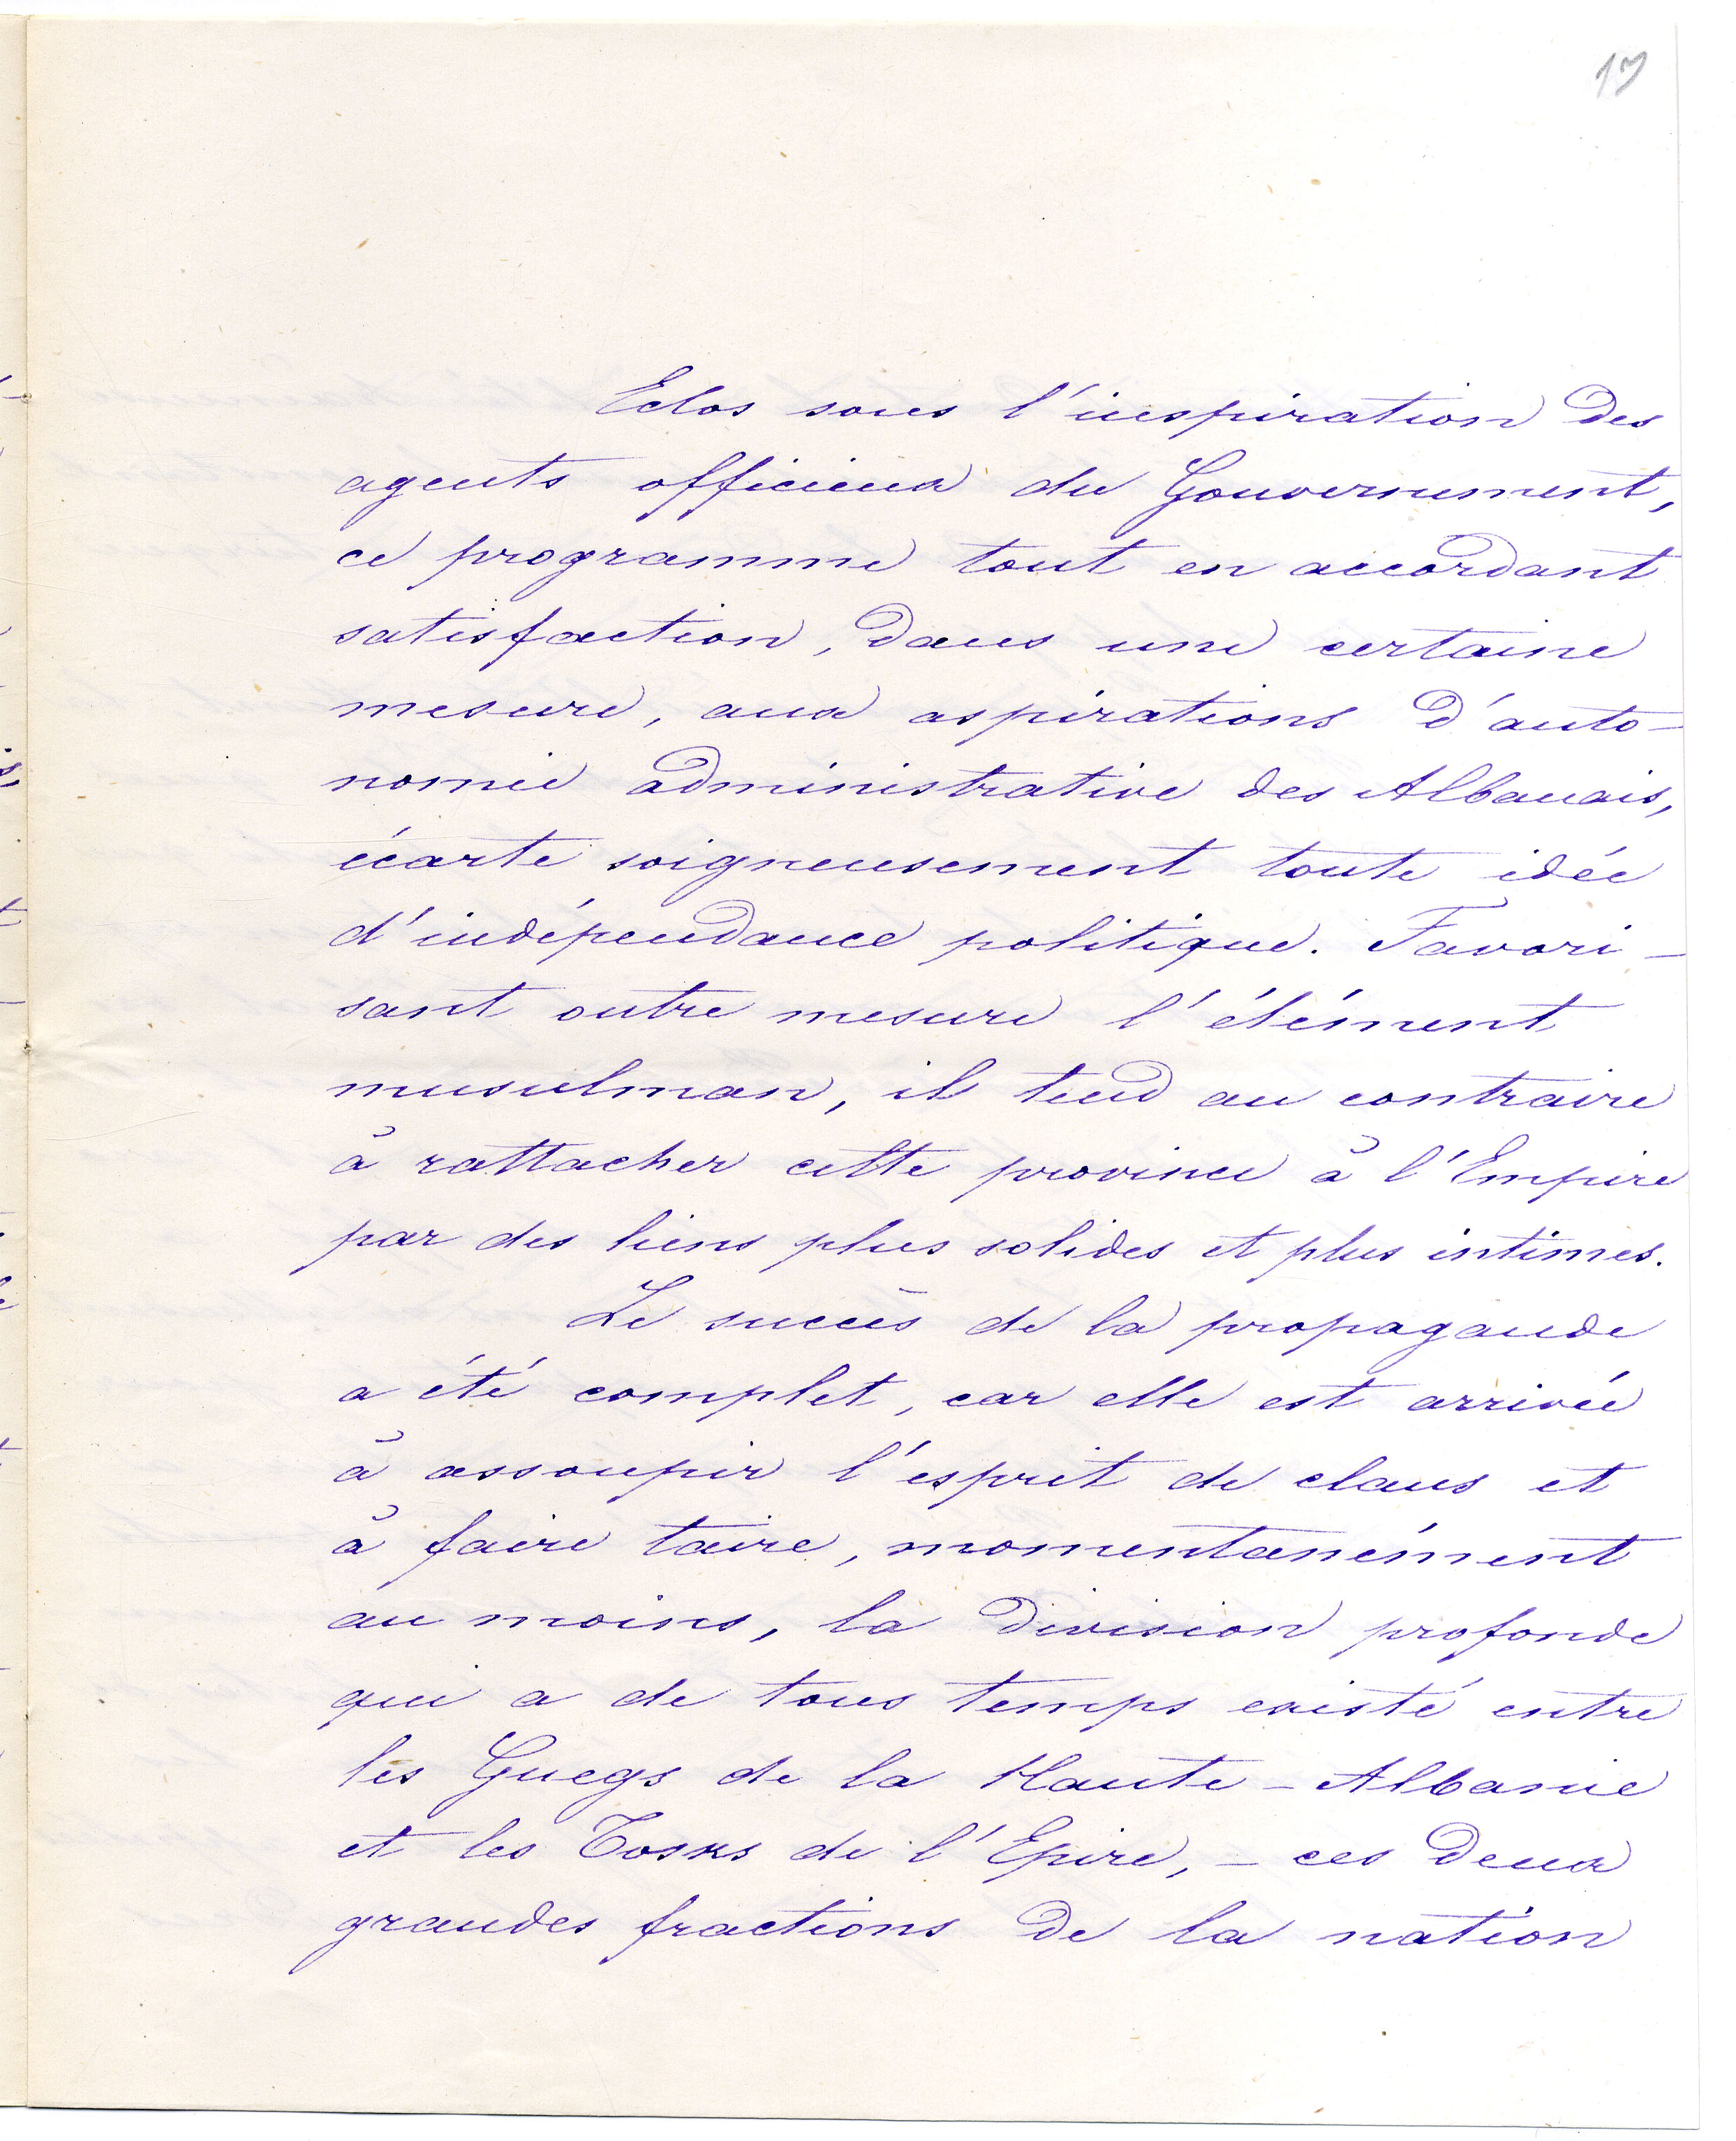 Eclos sous l'inspiration des
agents officieux du Gouvernement,
ce programme tout en accordant
satisfaction, dans une certaine
mesure, aux aspirations d'auto-
nomie administrative des Albanais,
écarte soigneusement toute idée
d'indépendance politique. Favori-
sant outre mesure l'élément
musulman, il tend au contraire
à rattacher cette province à l'Empire
par des liens plus solides et plus intimes.
Le succès de la propagande
a été complet, car elle est arrivée
à assoupir l'esprit de clans et
à faire taire, momentanément
au moins, la division profonde
qui a de tous temps existé entre
les Guegs de la Haute-Albanie
et les Tosks de l'Epire, - ces deux
grandes fractions de la nation